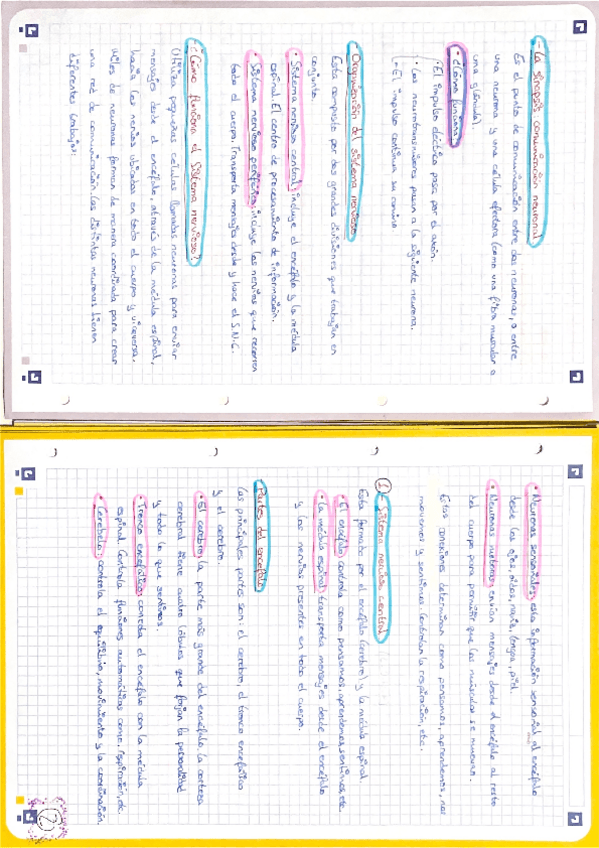 - La sinapsis comunicación neuronal
Es el punto de comunicación entre dos neuronas, o entre
una neurona y una célula efectora (como una fibra muscular o
una glándula).
• ¿Cómo funciona?
• El impulso eléctrico pasa por el axón.
• Los neurotransmisores pasan a la siguiente neurona.
• El impulso continua su camino
• Organización del sistema nervioso
Esta compuesto por dos grandes divisiones que trabajan en
conjunto.
• Sistema nervioso central: incluye el encéfalo y la médula
espinal. El centro de procesamiento de información.
• Sistema nervioso periférico: incluye los nervios que recorren
todo el cuerpo. Transporta mensajes desde y hace el S.N.C.
• ¿Cómo funciona el sistema nervioso?
Utiliza pequeñas células llamadas neuronas para enviar
mensajes desde el encéfalo, através de la médula espinal,
hacia los nervios ubicados en todo el cuerpo y viceversa.
Miles de neuronas forman de manera coordinada para crear
una red de comunicación. Las distintas neuronas tienen
diferentes trabajos:
• Neuronas sensoriales: esta información sensorial al encéfalo
desde los ojos, oídos, nariz, lengua, piel.
• Neuronas motoras: envían mensajes desde el encéfalo al resto
del cuerpo para permitir que los músculos se muevan.
Estas conexiones determinan como pensamos, aprendemos, nos
movemos y sentimos. Controlan la respiración, etc.
1 - Sistema nervioso central
Esta formado por el encéfalo (cerebro) y la médula espinal.
• El encéfalo: controla como pensamos, aprendemos, sentimos, etc.
• La médula espinal: transporta mensajes desde el encéfalo
y los nervios presentes en todo el cuerpo.
Partes del encéfalo
Las principales partes son: el cerebro, el tronco encefálico
y el cerebro.
• El cerebro: la parte más grande del encéfalo, la corteza
cerebral tiene cuatro lóbulos que forjan la personalidad
y todo lo que sentimos.
• Tronco encefálico: conecta el encéfalo con la médula
espinal. Controla funciones automáticas como: respiración, etc.
• Cerebelo: controla el equilibrio, movimiento y la coordinación.
2